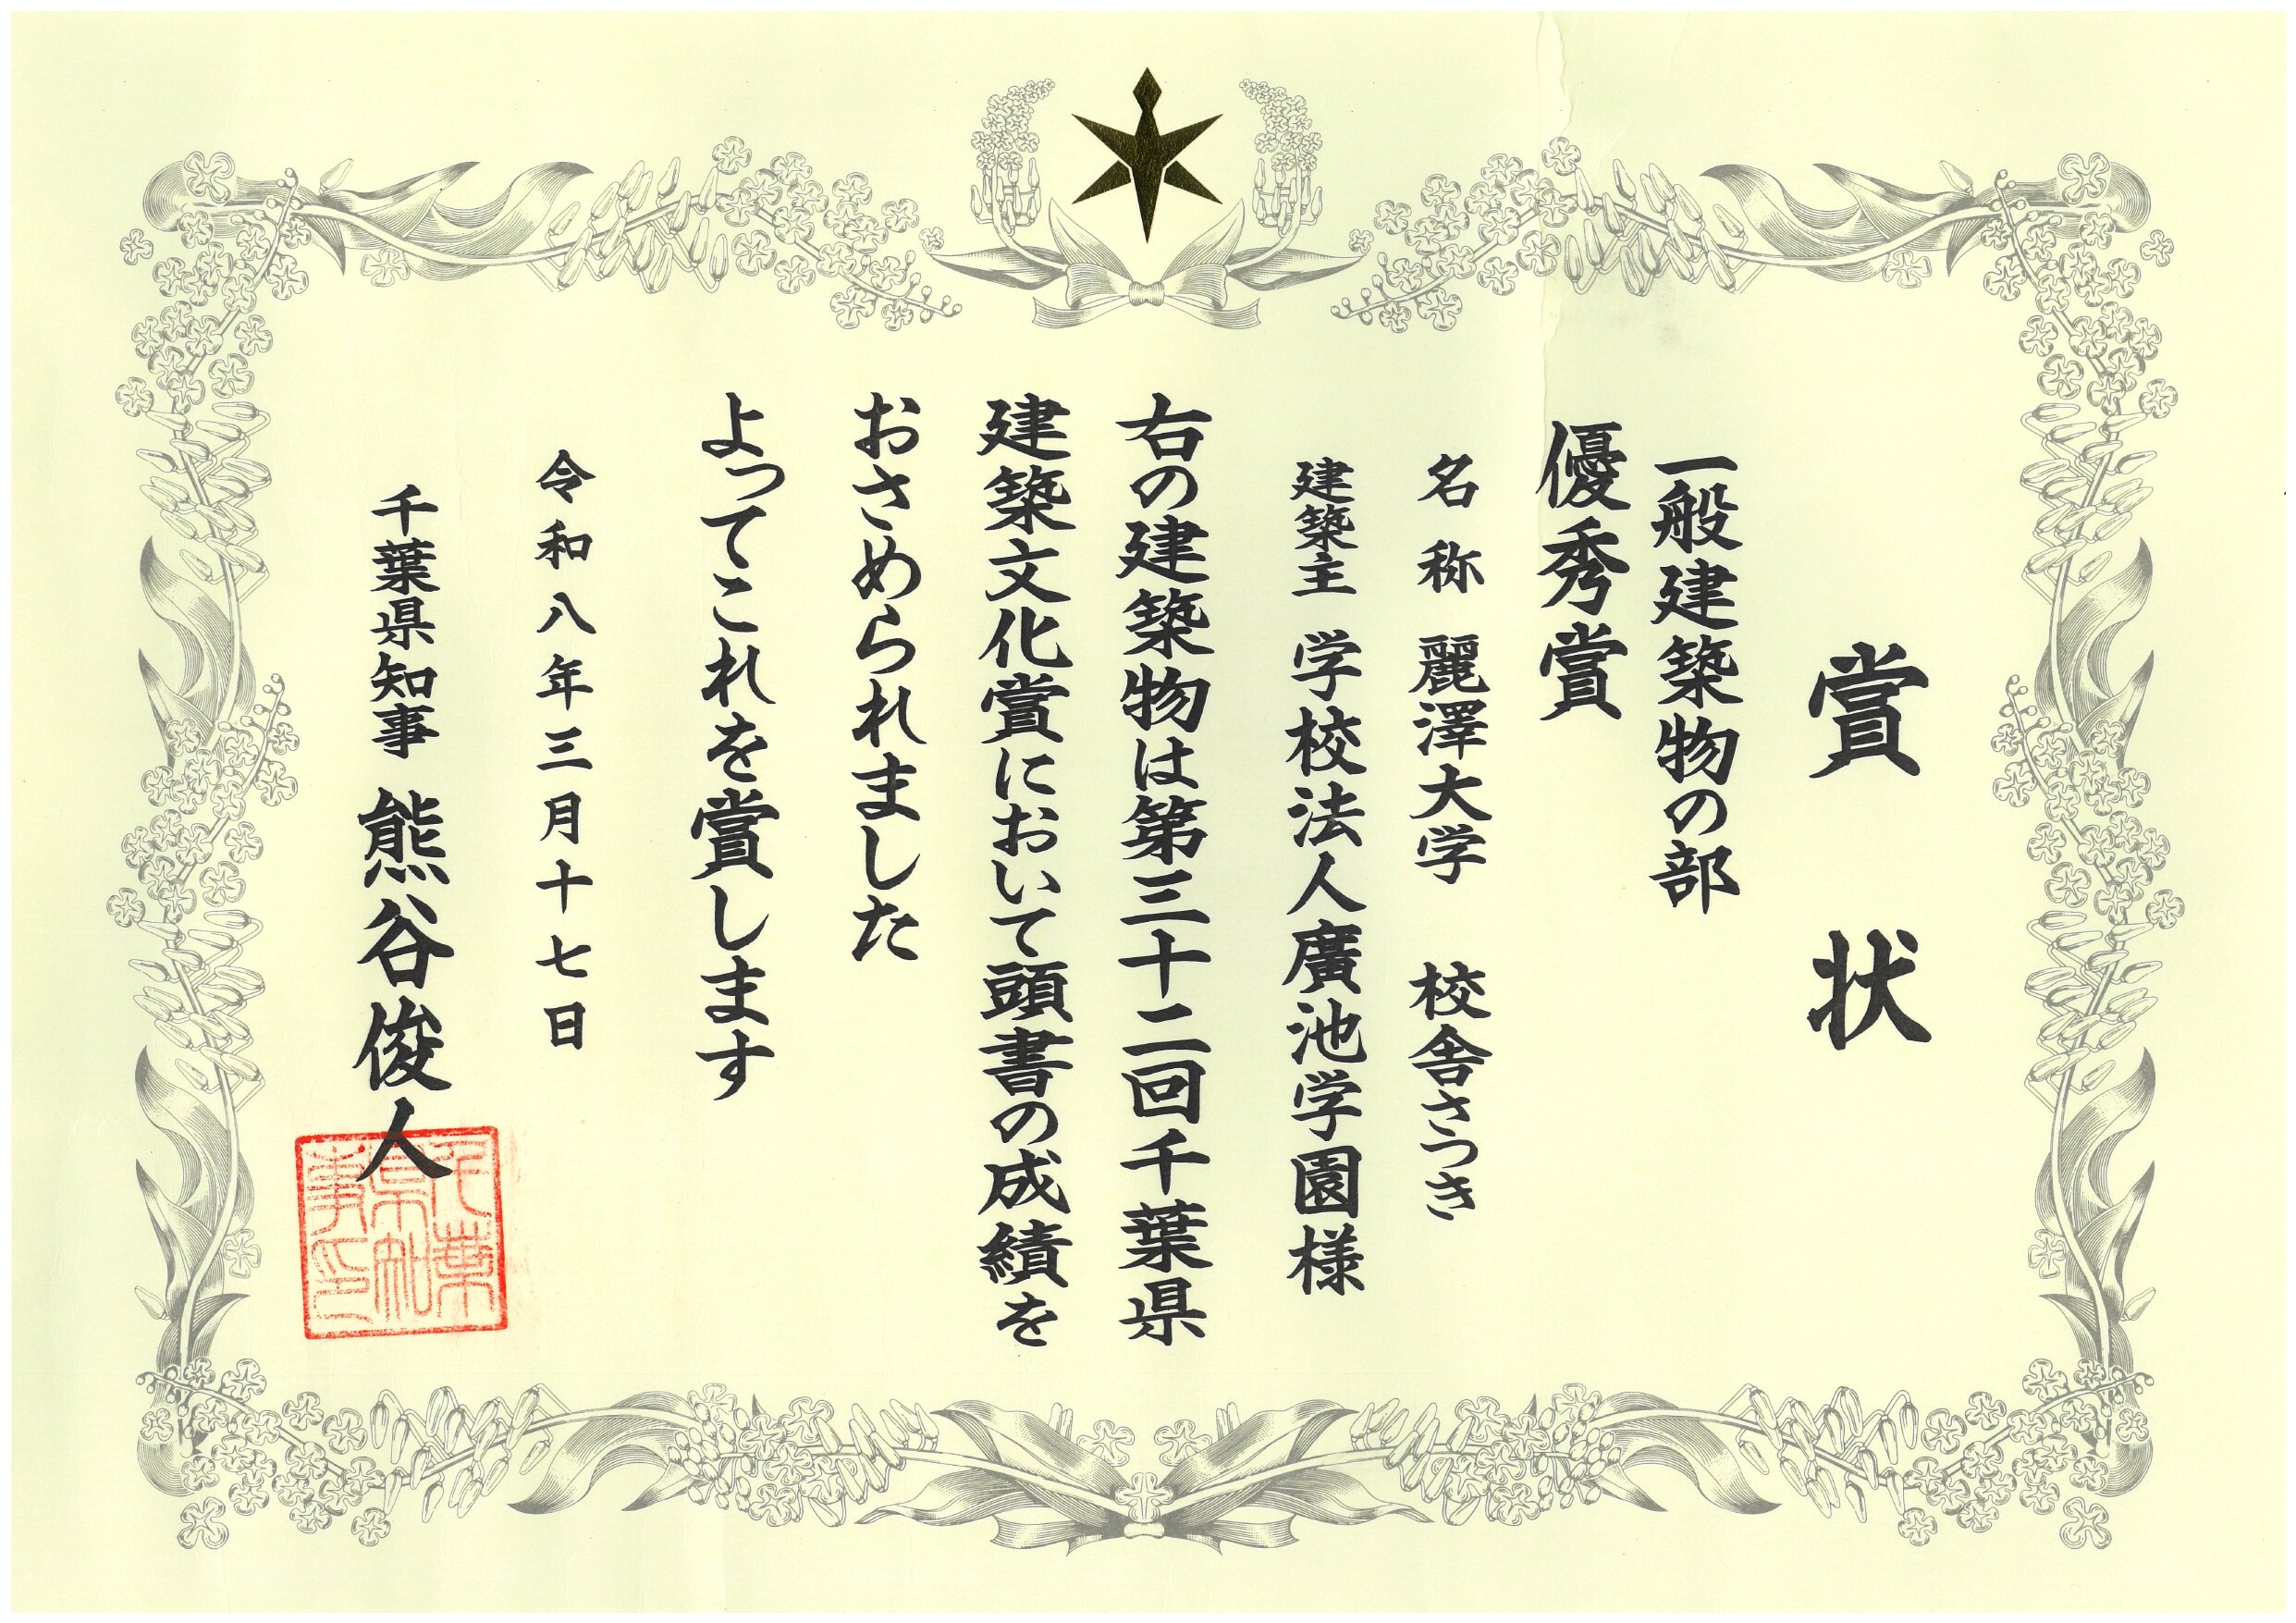 賞状
一般建築物の部
優秀賞
名称 麗澤大学 校舎さつき
建築主 学校法人廣池学園様
右の建築物は第三十二回千葉県
建築文化賞において頭書の成績を
おさめられました
よってこれを賞します
令和八年三月十七日
千葉県知事 熊谷俊人
千葉
県知
事印